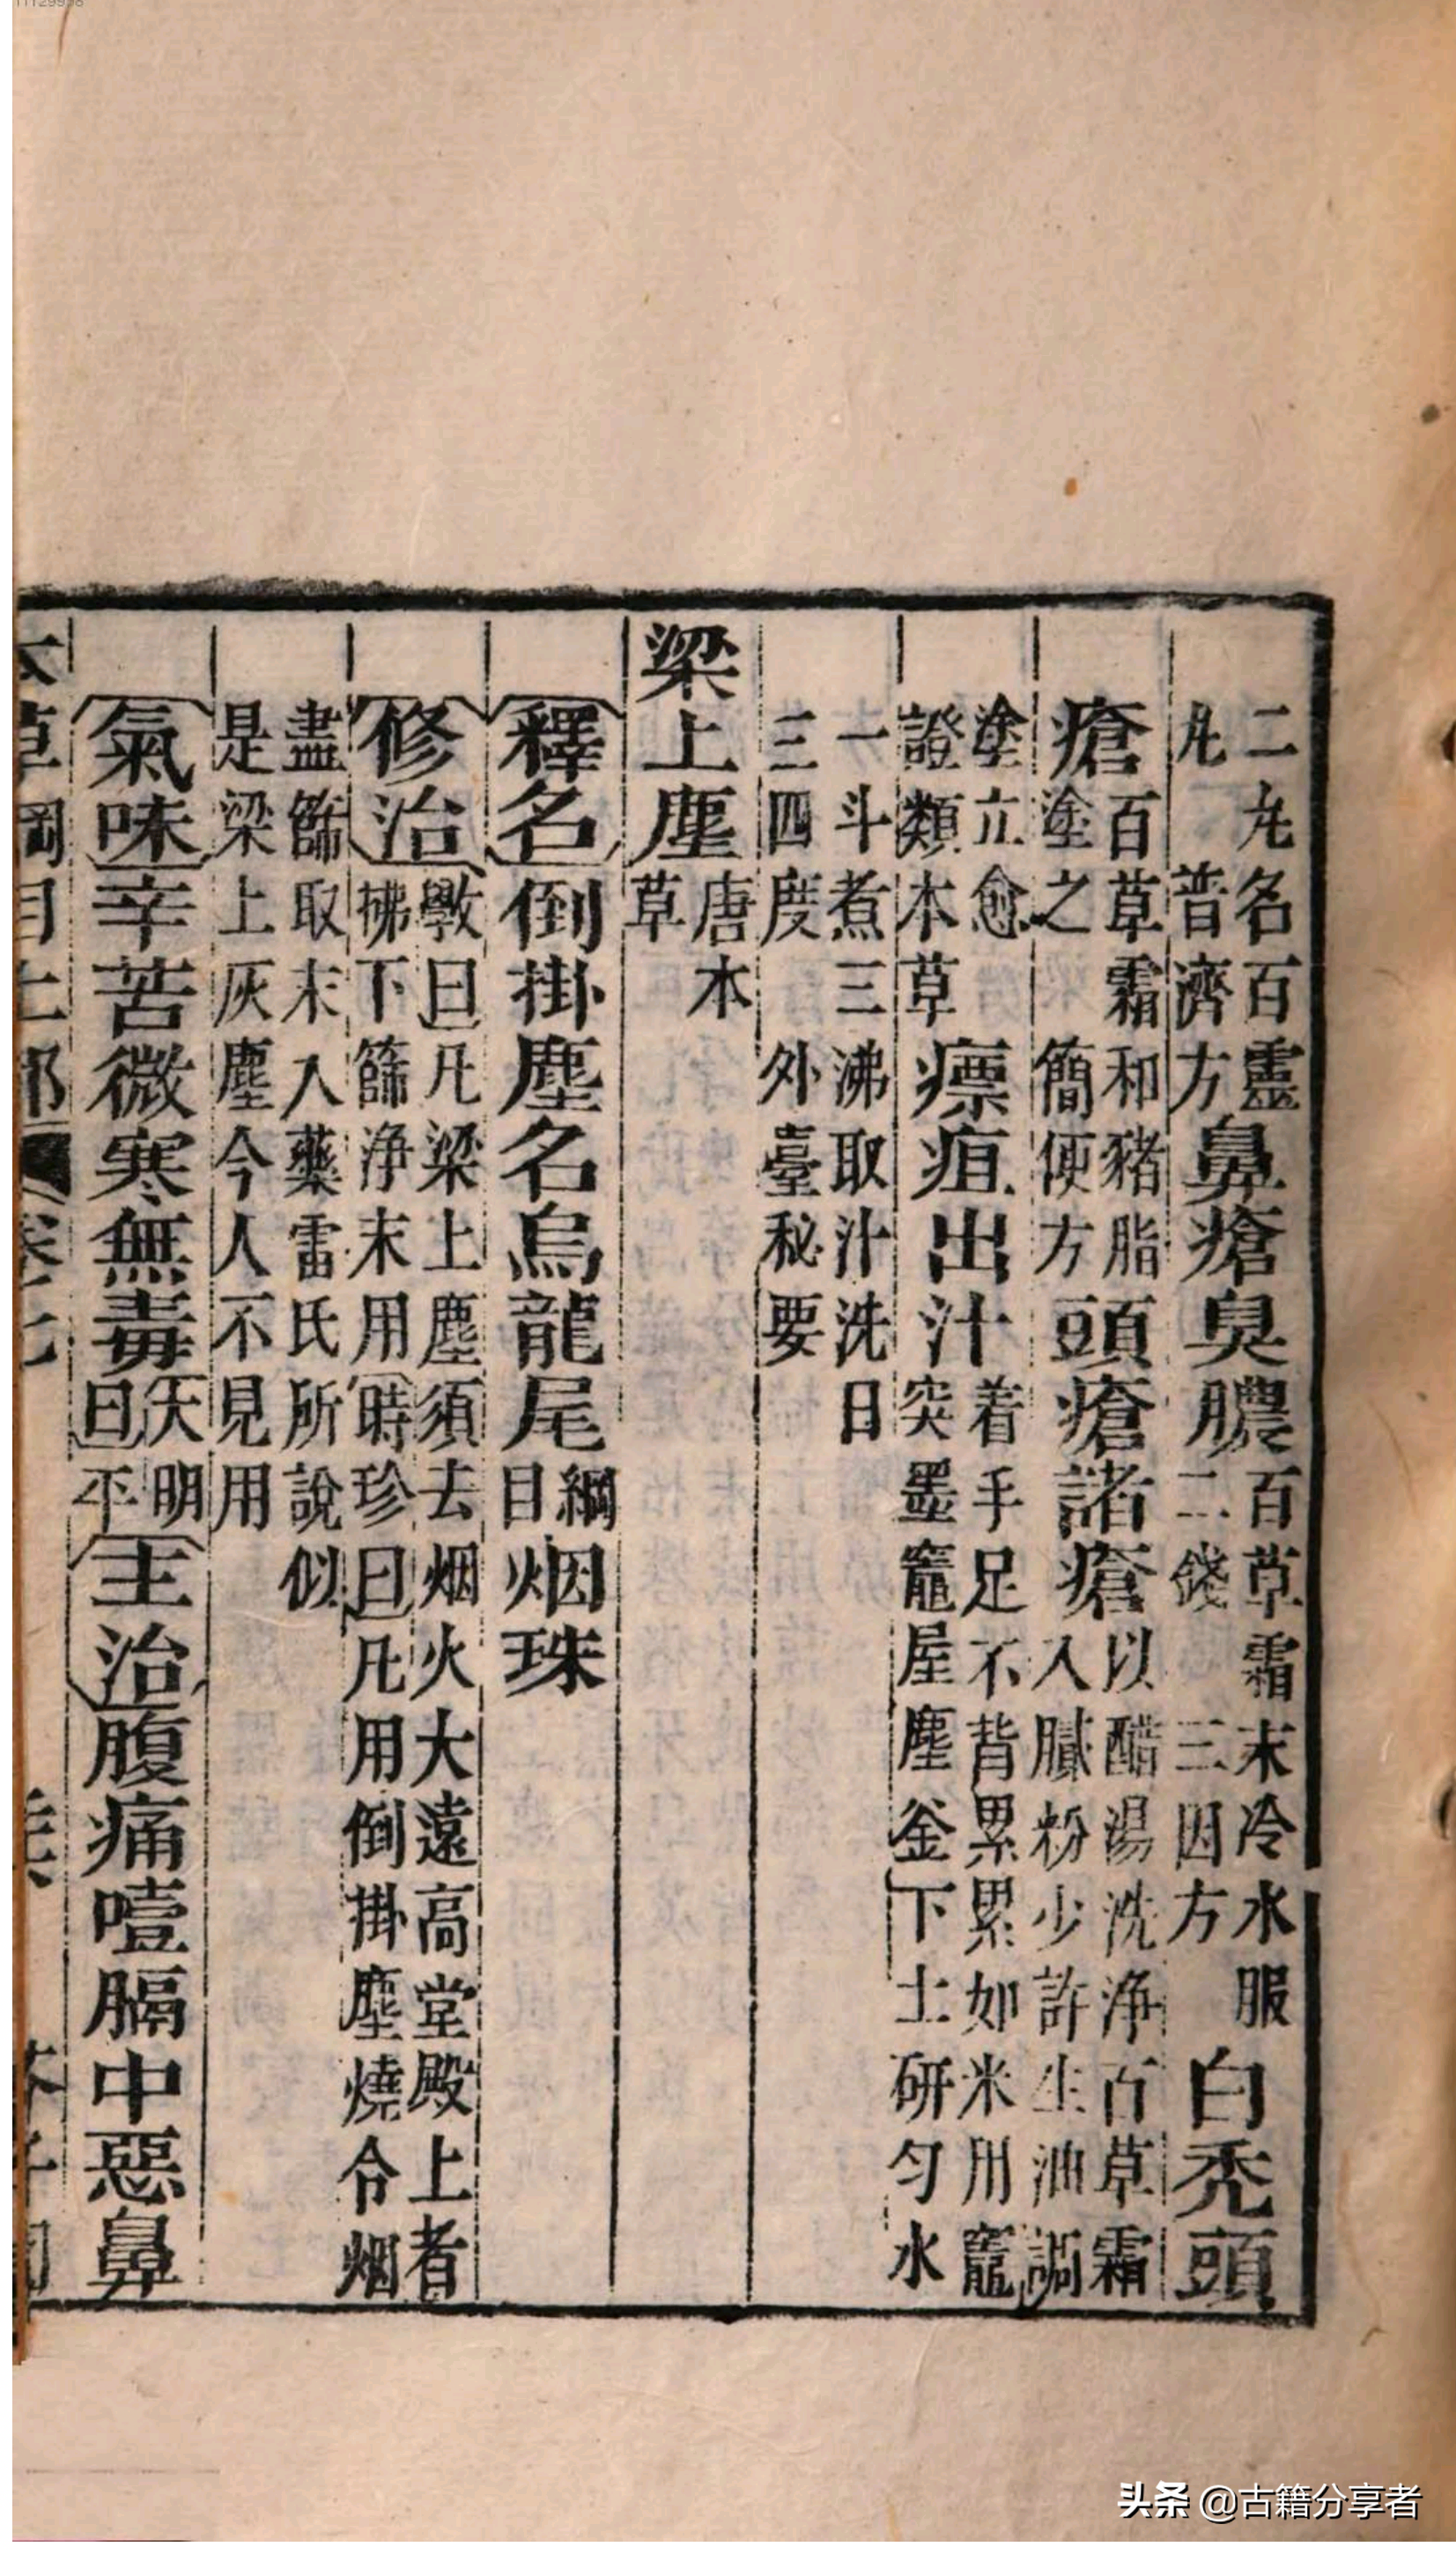 二九名百靈
九 普濟方
鼻瘡臭膿
百草霜末冷水服
二錢 三因方
白禿頭
瘡
百草霜和豬脂
塗之 簡便方
頭瘡諸瘡
以醋湯洗淨百草霜
入膩粉少許生油調
塗立愈
證類本草
瘭疽出汁
着手足不背累累如米用竈
突墨竈屋塵釜下土研匀水
一斗煮三沸取汁洗日
三四度 外臺秘要
梁上塵
唐本
草
釋名倒掛塵名烏龍尾
綱
目
烟珠
修治
斆曰凡梁上塵須去烟火大遠高堂殿上者
拂下篩淨末用時珍曰凡用倒掛塵燒令烟
盡篩取末入藥雷氏所說似
是梁上灰塵今人不見用
氣味辛苦微寒無毒
大明
曰平
主治腹痛噎膈中惡鼻
頭条 @古籍分享者